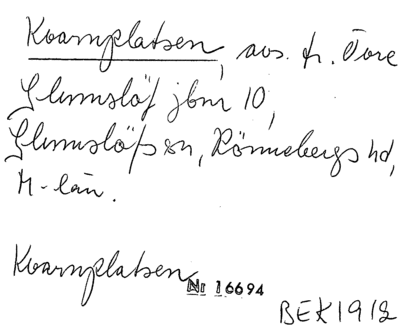 Kvarnplatsen, avs. fr. Tore
Glumslöf jbnr 10,
Glumslöfs sn, Rönnebergs hd,
M-län.
Kvarnplatsen
Nr 16694
BEK1912